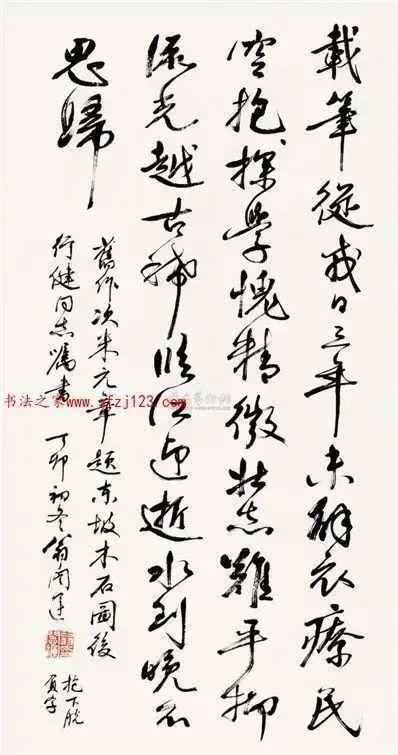 載筆從戎日三年未解衣療民
空抱探學愧精微壯志難平抑
流光越古稀臨江迎逝水到晚不
思歸
舊作次米元章題東坡木石圖後
行健同志囑書 丁卯初冬翁闓運
抱下脫
負字
书法之家www.sfzj123.com